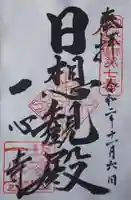 奉拝
令和二年十一月六日
日想観殿
一心寺